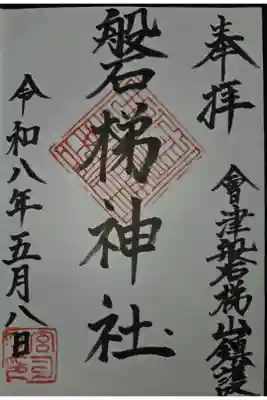 奉拝
會津磐梯山鎮護
磐梯神社
令和八年五月八日